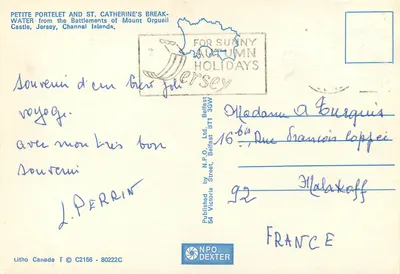 PETITE PORTELET AND ST. CATHERINE'S BREAK-
WATER from the Battlements of Mount Orgueil
Castle, Jersey, Channel Islands,
FOR SUNNY
AUTUMN
HOLIDAYS
Jersey
Souvenir d'un très joli
voyage.
avec mon très bon
souvenir
J. PERRIN
Published by N.P.O. Ltd., Belfast
64 Victoria Street, Belfast BT1 3GW
Madame A Turquis
16 bis, Rue François Coppée
92 Malakoff
FRANCE
Litho Canada T © C2156 - 80222C
NPO
DEXTER